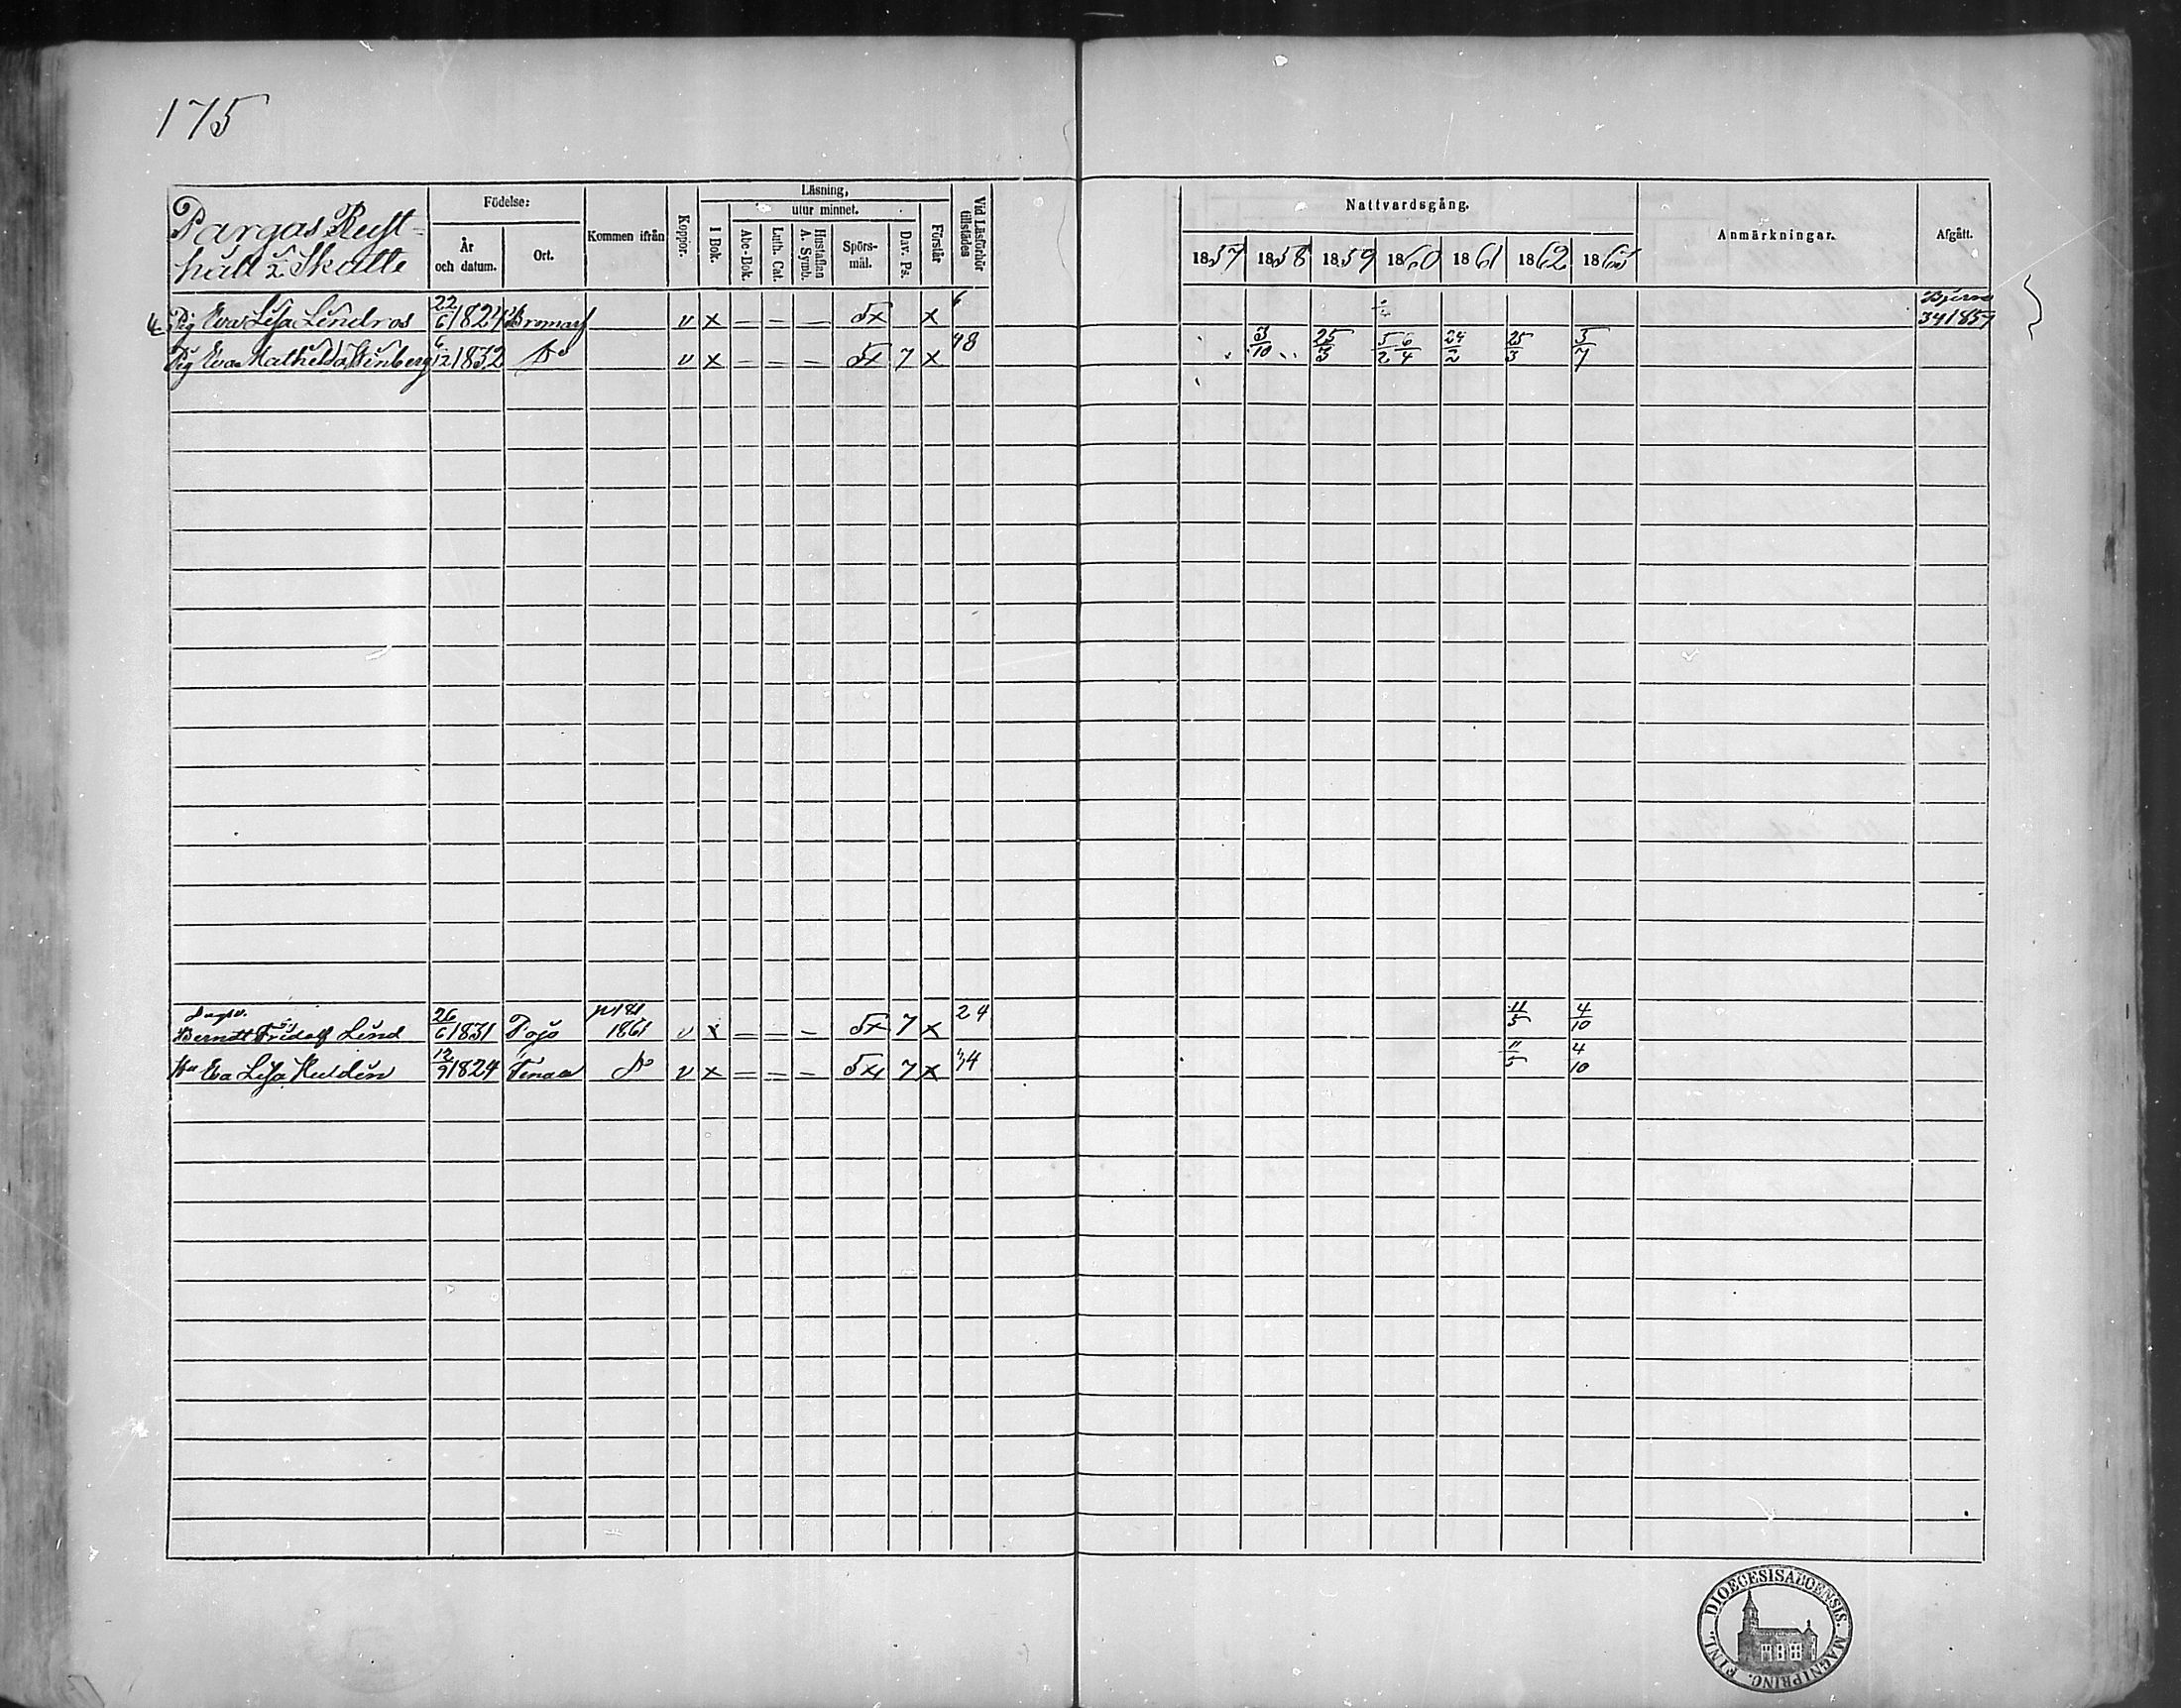 175
Pargas Rust-
håll o. Skatte
Födelse:
År och datum.
Ort.
Kommen ifrån
Koppor.
Läsning,
I Bok.
utur minnet.
Abc-Bok.
Luth. Cat.
Hustaflan A. Symb.
Spörs-mål.
Dav. Ps.
Förstår
Vid Läsförhör tillstädes
Nattvardsgång.
1857 1858 1859 1860 1861 1862 1863
Anmärkningar.
Afgått.
Pig Eva Lisa Lindros 22/6 1824 Bromarf v x — — — 5x x 6 Bjerno 34 1857
Pig Eva Mathilda Stenberg 6/12 1832 Do v x — — — 5x 7 x 48 3/10 25/3 5/2 6/4 24/2 25/3 5/7
Berndt Fridolf Lind 26/6 1831 Pojo p 181 1861 v x — — — 5x 7 x 24 11/5 4/10
Hu Eva Lisa Huldin 12/9 1824 Tenala Do v x — — — 5x 7 x 34 11/5 4/10
DIOECESIS ABOENSIS. MAGNI PRINC. FINL.